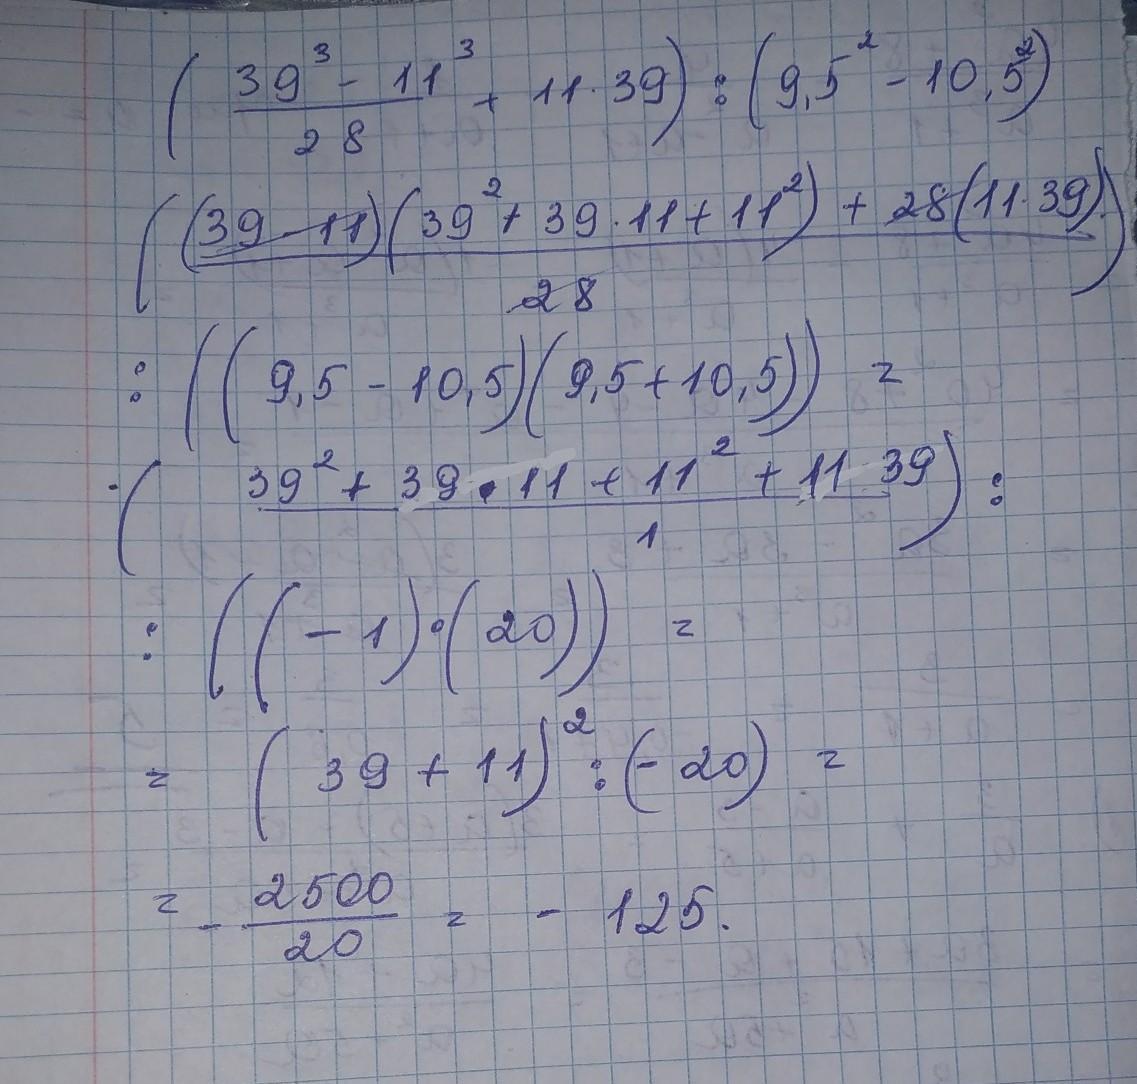 ( 39³ - 11³ / 28 + 11 · 39 ) : ( 9,5² - 10,5² )
( (39 - 11)(39² + 39 · 11 + 11²) + 28(11 · 39) / 28 )
: ( ( 9,5 - 10,5 )( 9,5 + 10,5 ) ) =
( 39² + 39 · 11 + 11² + 11 39 / 1 ) :
: ( ( - 1 ) · ( 20 ) ) =
= ( 39 + 11 )² : ( - 20 ) =
= - 2500 / 20 = - 125.